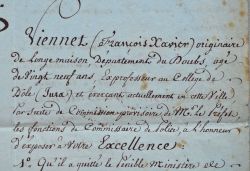 Viennet (François Xavier) originaire
de Longemaison, Département du Doubs, agé
de Vingt neuf ans, Exprofesseur au College de
Dôle (Jura) et exerçant actuellement en cette Ville
Par Suite de Commission provisoire de Mr. le Préfet
les fonctions de Commissaire de Police, a l'honneur
d'exposer à Votre Excellence
1º. Qu'il a quitté le pénible Ministère de